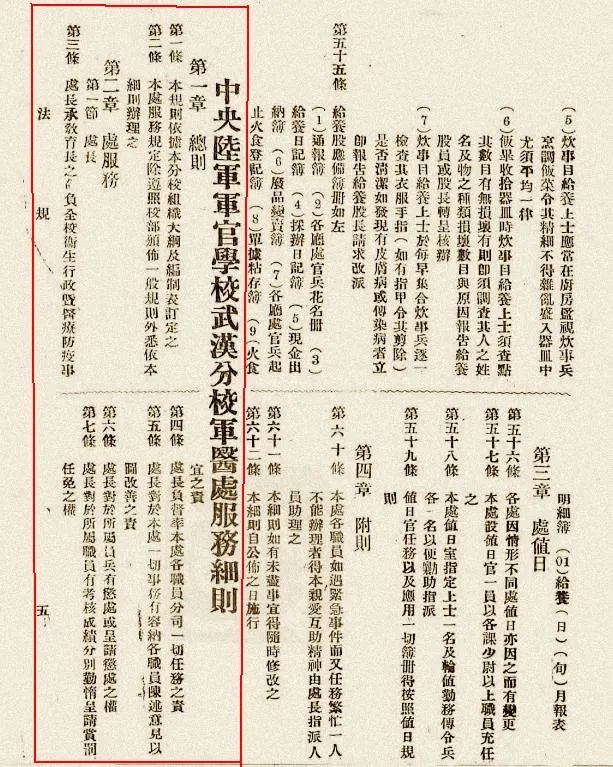 （5）炊事目給養上士應當在廚房監視炊事兵
烹調飯菜令其精細不得雜亂盛入器皿中
尤須平均一律
（6）飯畢收拾器皿時炊事目給養上士須查點
其數目有無損壞有則卽須調查其人之姓
名及物之種類損壞數目與原因報告給養
股員或股長轉呈核辦
（7）炊事目給養上士於每早集合炊事兵逐一
檢查其衣服手指（如有指甲令其剪除）
是否清潔如發現有皮膚病或傳染病者立
卽報告給養股長請求改派
第五十五條 給養股應備簿冊如左
（1）通報簿 （2）各廳處官兵花名冊 （3）
給養日記簿 （4）採辦日記簿 （5）現金出
納簿 （6）廢品變賣簿 （7）各廳處官兵起
止火食登記簿 （8）單據粘存簿 （9）火食
明細簿 （01）給養（日）（旬）月報表
第三章 處值日
第五十六條 各處因情形不同處值日亦因之而有變更
第五十七條 本處設值日官一員以各課少尉以上職員充任
之
第五十八條 本處值日室指定上士一名及輪值勤務傳令兵
各一名以便勤助指派
第五十九條 值日官任務以及應用一切簿冊得按照值日規
則
第四章 附則
第六十條 本處各職員如遇緊急事件而又任務繁忙一人
不能辦理者得本親愛互助精神由處長指派人
員助理之
第六十一條 本細則如有未盡事宜得隨時修改之
第六十二條 本細則自公佈之日施行
中央陸軍軍官學校武漢分校軍醫處服務細則
第一章 總則
第一條 本規則依據本分校組織大綱及編制表訂定之
第二條 本處服務規定除遵照校部頒佈一般規則外悉依本
細則辦理之
第二章 處服務
第一節 處長
第三條 處長承教育長之命負全校衛生行政暨醫療防疫事
宜之責
第四條 處長負督率本處各職員分司一切任務之責
第五條 處長對於本處一切事務有容納各職員陳述意見以
圖改善之責
第六條 處長對於所屬員兵有懲處或呈請懲處之權
第七條 處長對於所屬職員有考核成績分別勤惰呈請賞罰
任免之權
法規 五